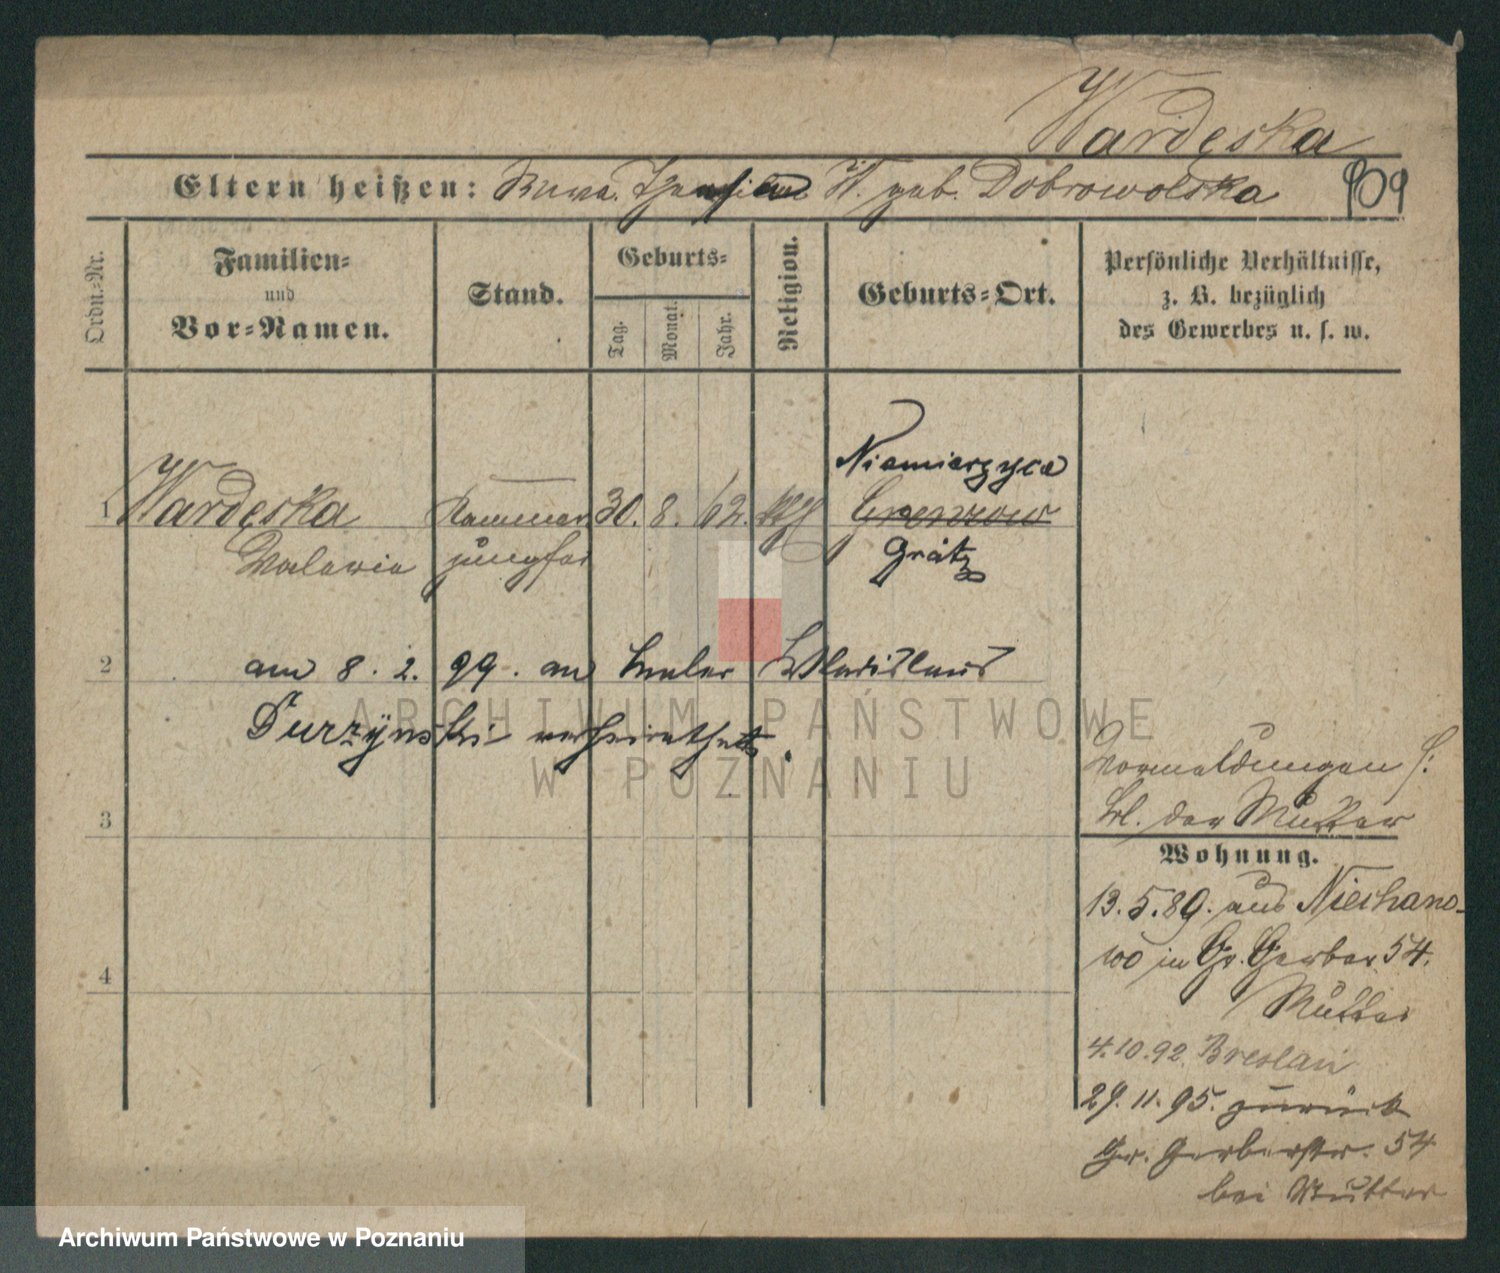 Wardęska
Eltern heißen: W. geb. Dobrowolska 909
Ordn.-Nr.
Familien-
und
Vor-Namen.
Stand.
Geburts-
Tag.
Monat.
Jahr.
Religion.
Geburts-Ort.
Persönliche Verhältnisse,
z. B. bezüglich
des Gewerbes u. s. w.
Niemierzyce
1 Wardęska Kammer 30. 8. 62. kth
Valeria jungfer Grätz
2 am 8. 2. 99. an Maler Wladislaus
Durzynski verheirathet.
Vormeldungen s:
Bl. der Mutter
3
Wohnung.
13.5.89. aus Niechano-
wo in Gr. Gerber 54.
4
Mutter
4.10.92. Breslau
29.11.95. zurück
Gr. Gerberstr. 54
bei Mutter
ARCHIWUM PAŃSTWOWE
W POZNANIU
Archiwum Państwowe w Poznaniu